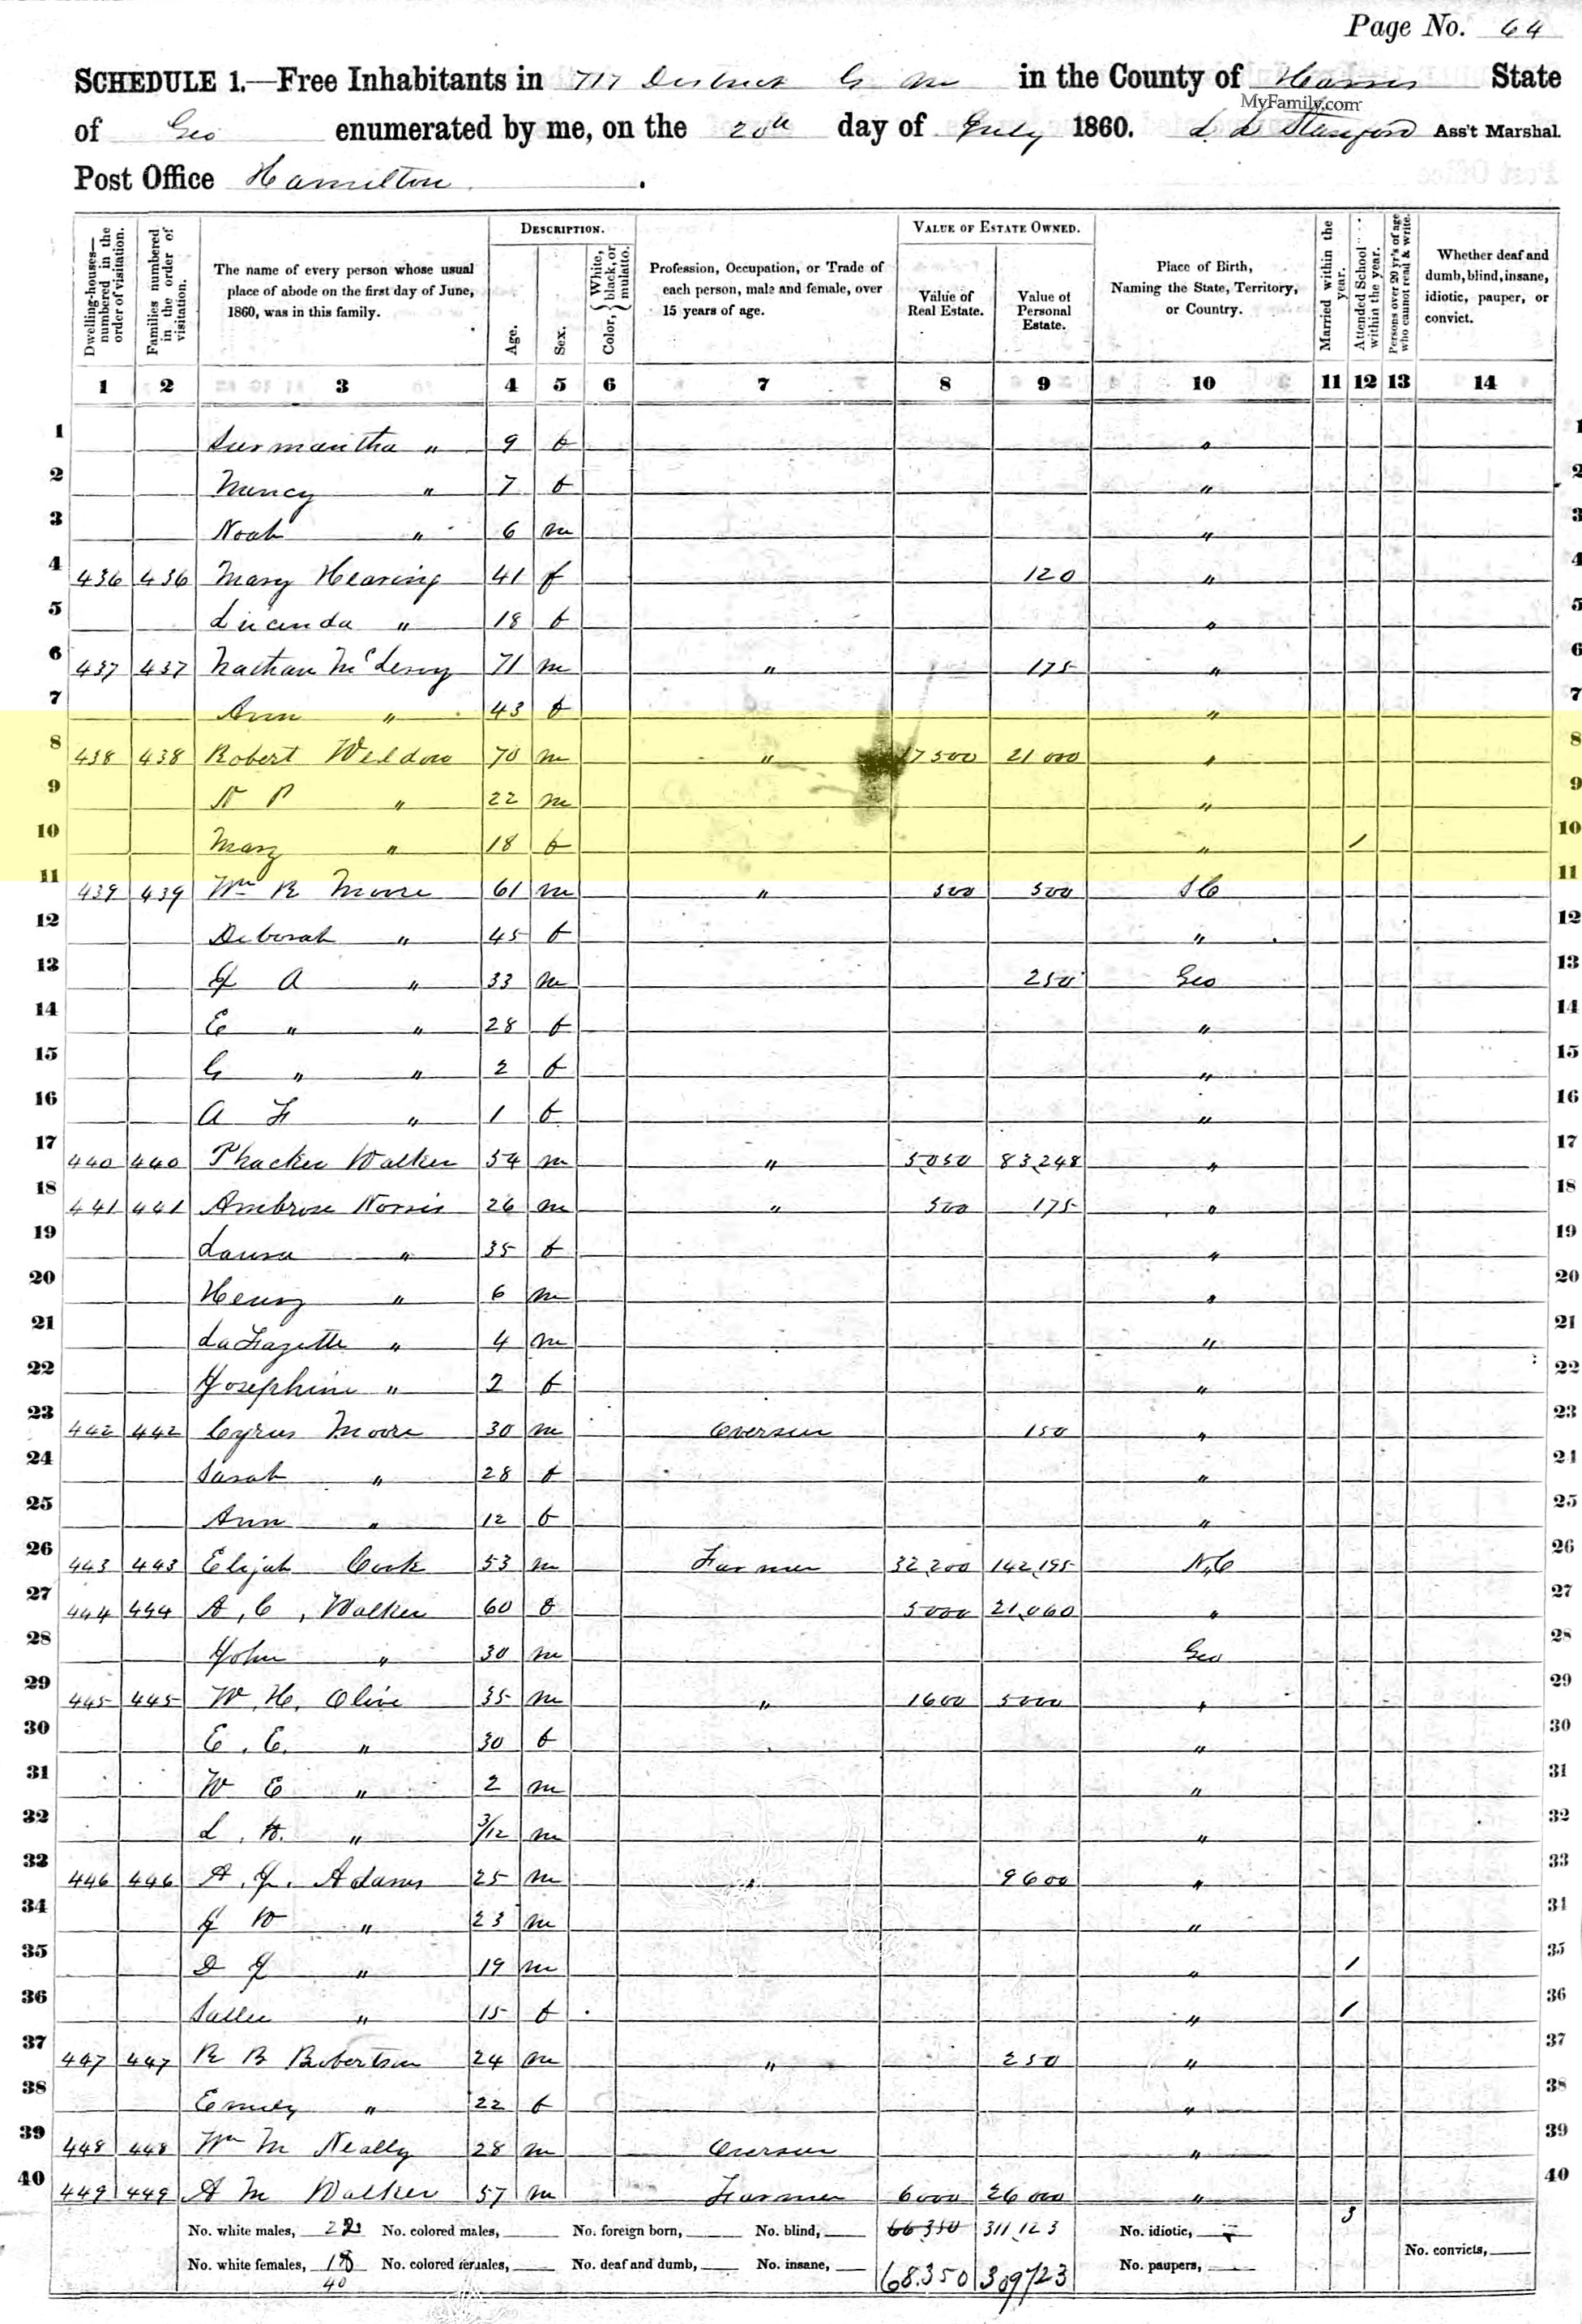 Page No. 64
SCHEDULE 1.—Free Inhabitants in 717 District G M in the County of Harris State
MyFamily.com
of Geo enumerated by me, on the 20th day of July 1860. Ass't Marshal.
Post Office Hamilton.
Dwelling-houses—numbered in the order of visitation.
Families numbered in the order of visitation.
The name of every person whose usual place of abode on the first day of June, 1860, was in this family.
DESCRIPTION.
Age.
Sex.
Color, { White, black, or mulatto.
Profession, Occupation, or Trade of each person, male and female, over 15 years of age.
VALUE OF ESTATE OWNED.
Value of Real Estate.
Value of Personal Estate.
Place of Birth, Naming the State, Territory, or Country.
Married within the year.
Attended School within the year.
Persons over 20 yr's of age who cannot read & write.
Whether deaf and dumb, blind, insane, idiotic, pauper, or convict.
1 2 3 4 5 6 7 8 9 10 11 12 13 14
1 Surmantha " 9 f " 1
2 Nancy " 7 f " 2
3 Noah " 6 m " 3
4 436 436 Mary Hearing 41 f 120 " 4
5 Lucinda " 18 f " 5
6 437 437 Nathan 71 m " 175 " 6
7 Ann " 43 f " 7
8 438 438 Robert Weldon 70 m " 17500 21000 " 8
9 " 22 m " 9
10 Mary " 18 f " / 10
11 439 439 Wm R Moore 61 m " 500 500 SC 11
12 Deborah " 45 f " 12
13 J A " 33 m 250 Geo 13
14 E " " 28 f " 14
15 G " " 2 f " 15
16 A F " 1 f " 16
17 440 440 Thacker Walker 54 m " 5,050 83,248 " 17
18 441 441 Ambrose Norris 26 m " 500 175 " 18
19 Laura " 35 f " 19
20 Henry " 6 m " 20
21 LaFayette " 4 m " 21
22 Josephine " 2 f " 22
23 442 442 Cyrus Moore 30 m Overseer 150 " 23
24 Sarah " 28 f " 24
25 Ann " 12 f " 25
26 443 443 Elijah Cook 53 m Farmer 32,200 142,195 N,C 26
27 444 444 A, C, Walker 60 f 5000 21,060 " 27
28 John " 30 m Geo 28
29 445 445 W, H, Olive 35 m " 1600 5000 " 29
30 E, E. " 30 f " 30
31 W E " 2 m " 31
32 L, H. " 3/12 m " 32
33 446 446 A, J. Adams 25 m " 9600 " 33
34 J W " 23 m " 34
35 D J " 19 m " / 35
36 Sallie " 15 f " / 36
37 447 447 R B Robertson 24 m " 250 " 37
38 Emily " 22 f " 38
39 448 448 Wm M Neally 28 m Overseer " 39
40 449 449 A M Walker 57 m Farmer 6000 26000 " 40
No. white males, 22 No. colored males, No. foreign born, No. blind, 66,350 311,123 No. idiotic, 3
No. white females, 18 No. colored females, No. deaf and dumb, No. insane, 68.350 309723 No. paupers, No. convicts,
40